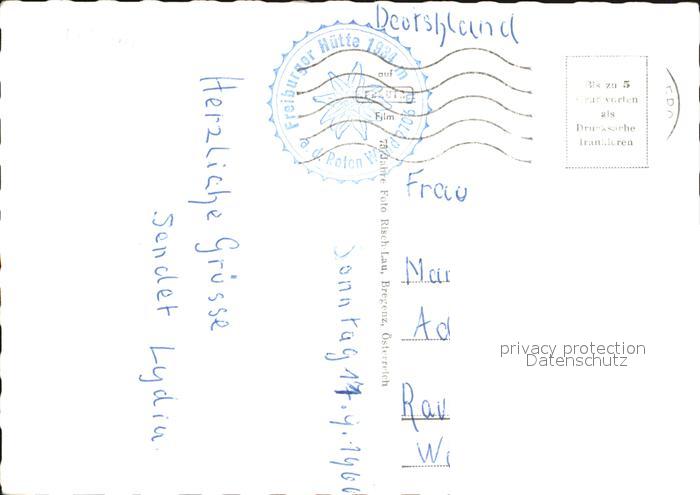 Deutshland
Freiburger Hütte 1931 m
a. d. Roten Wand
auf
Film
Bis zu 5
vorten
als
Drucksache
frankieren
Herzliche Grüsse
Sendet Lydia.
Sonntag
75 Jahre Foto Risch-Lau, Bregenz, Österreich
Frau
Mar
Ad
Rav
privacy protection
Datenschutz